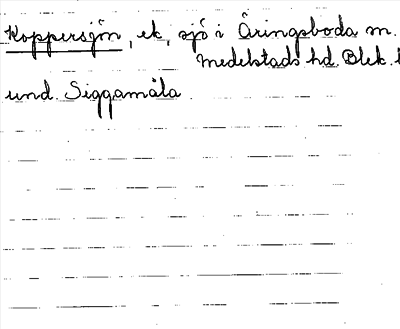 Koppersjön, ek, sjö i Äringsboda m.
Medelstads hd. Blek. l
und. Siggamåla